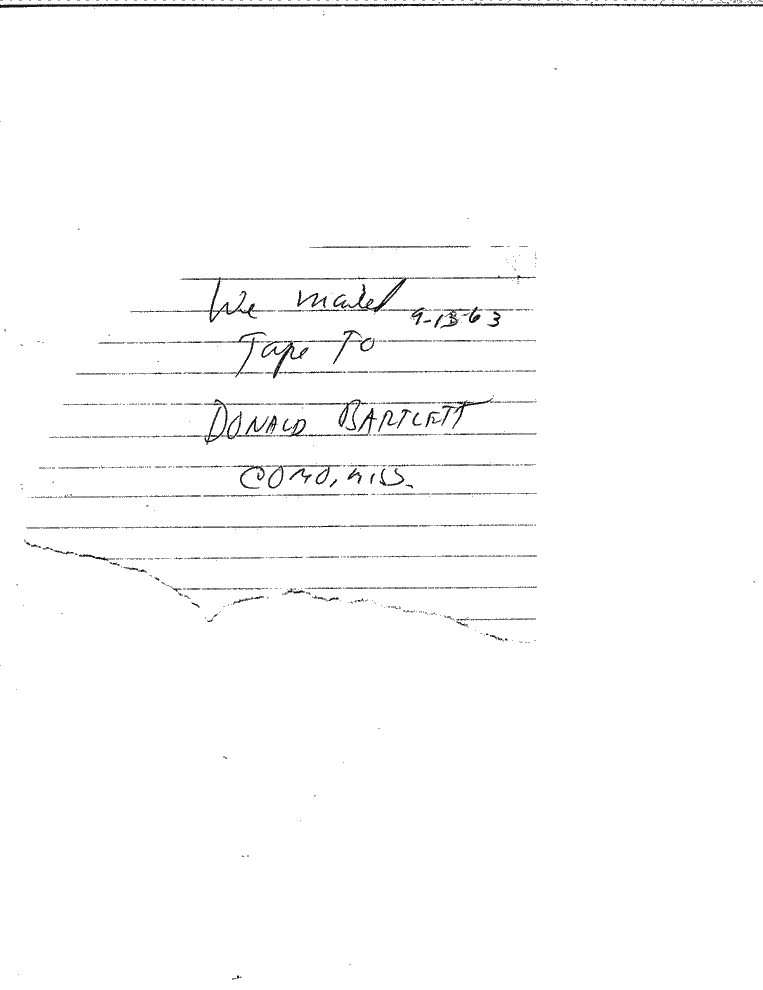 We mailed 9-13-63
Tape To
DONALD BARTLETT
COMO, MISS.